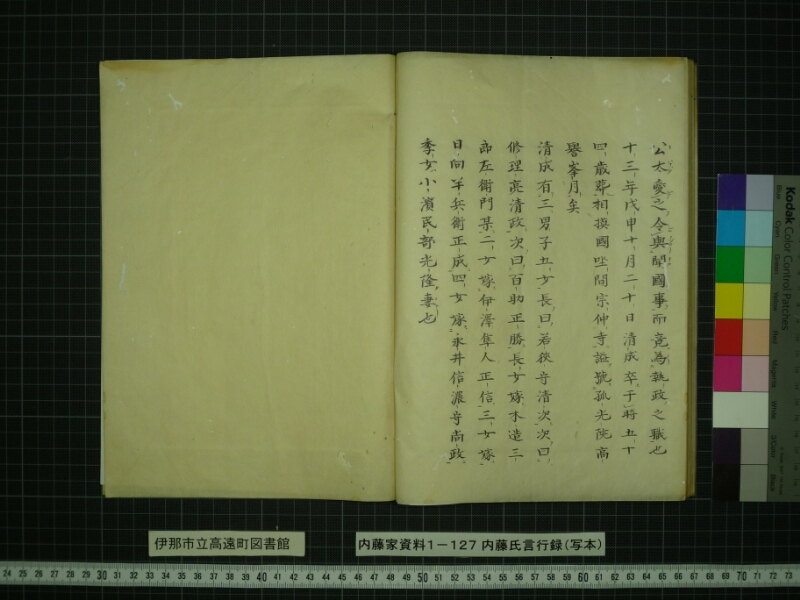 公太愛之令與聞國事而竟為執政之職也
十三年戊申十月二十日清成卒于時五十
四歳葬相摸國坐間宗仲寺謚號孤光院高
譽峯月矣
清成有三男子五女長曰若狹守清次次曰
修理亮清政次曰百助正勝長女嫁木造三
郎左衛門某二女嫁伊澤隼人正信三女嫁
日向半兵衛正成四女嫁永井信濃守尚政
季女小濱民部光隆妻也
伊那市立高遠町図書館
内藤家資料1－127 内藤氏言行録(写本)
Kodak Color Control Patches
Blue
Cyan
Green
Yellow
Red
Magenta
White
3/Color
Black
24 25 26 27 28 29 30 31 32 33 34 35 36 37 38 39 40 41 42 43 44 45 46 47 48 49 50 51 52 53 54 55 56 57 58 59 60 61 62 63 64 65 66 67 68 69 70 71 72 73